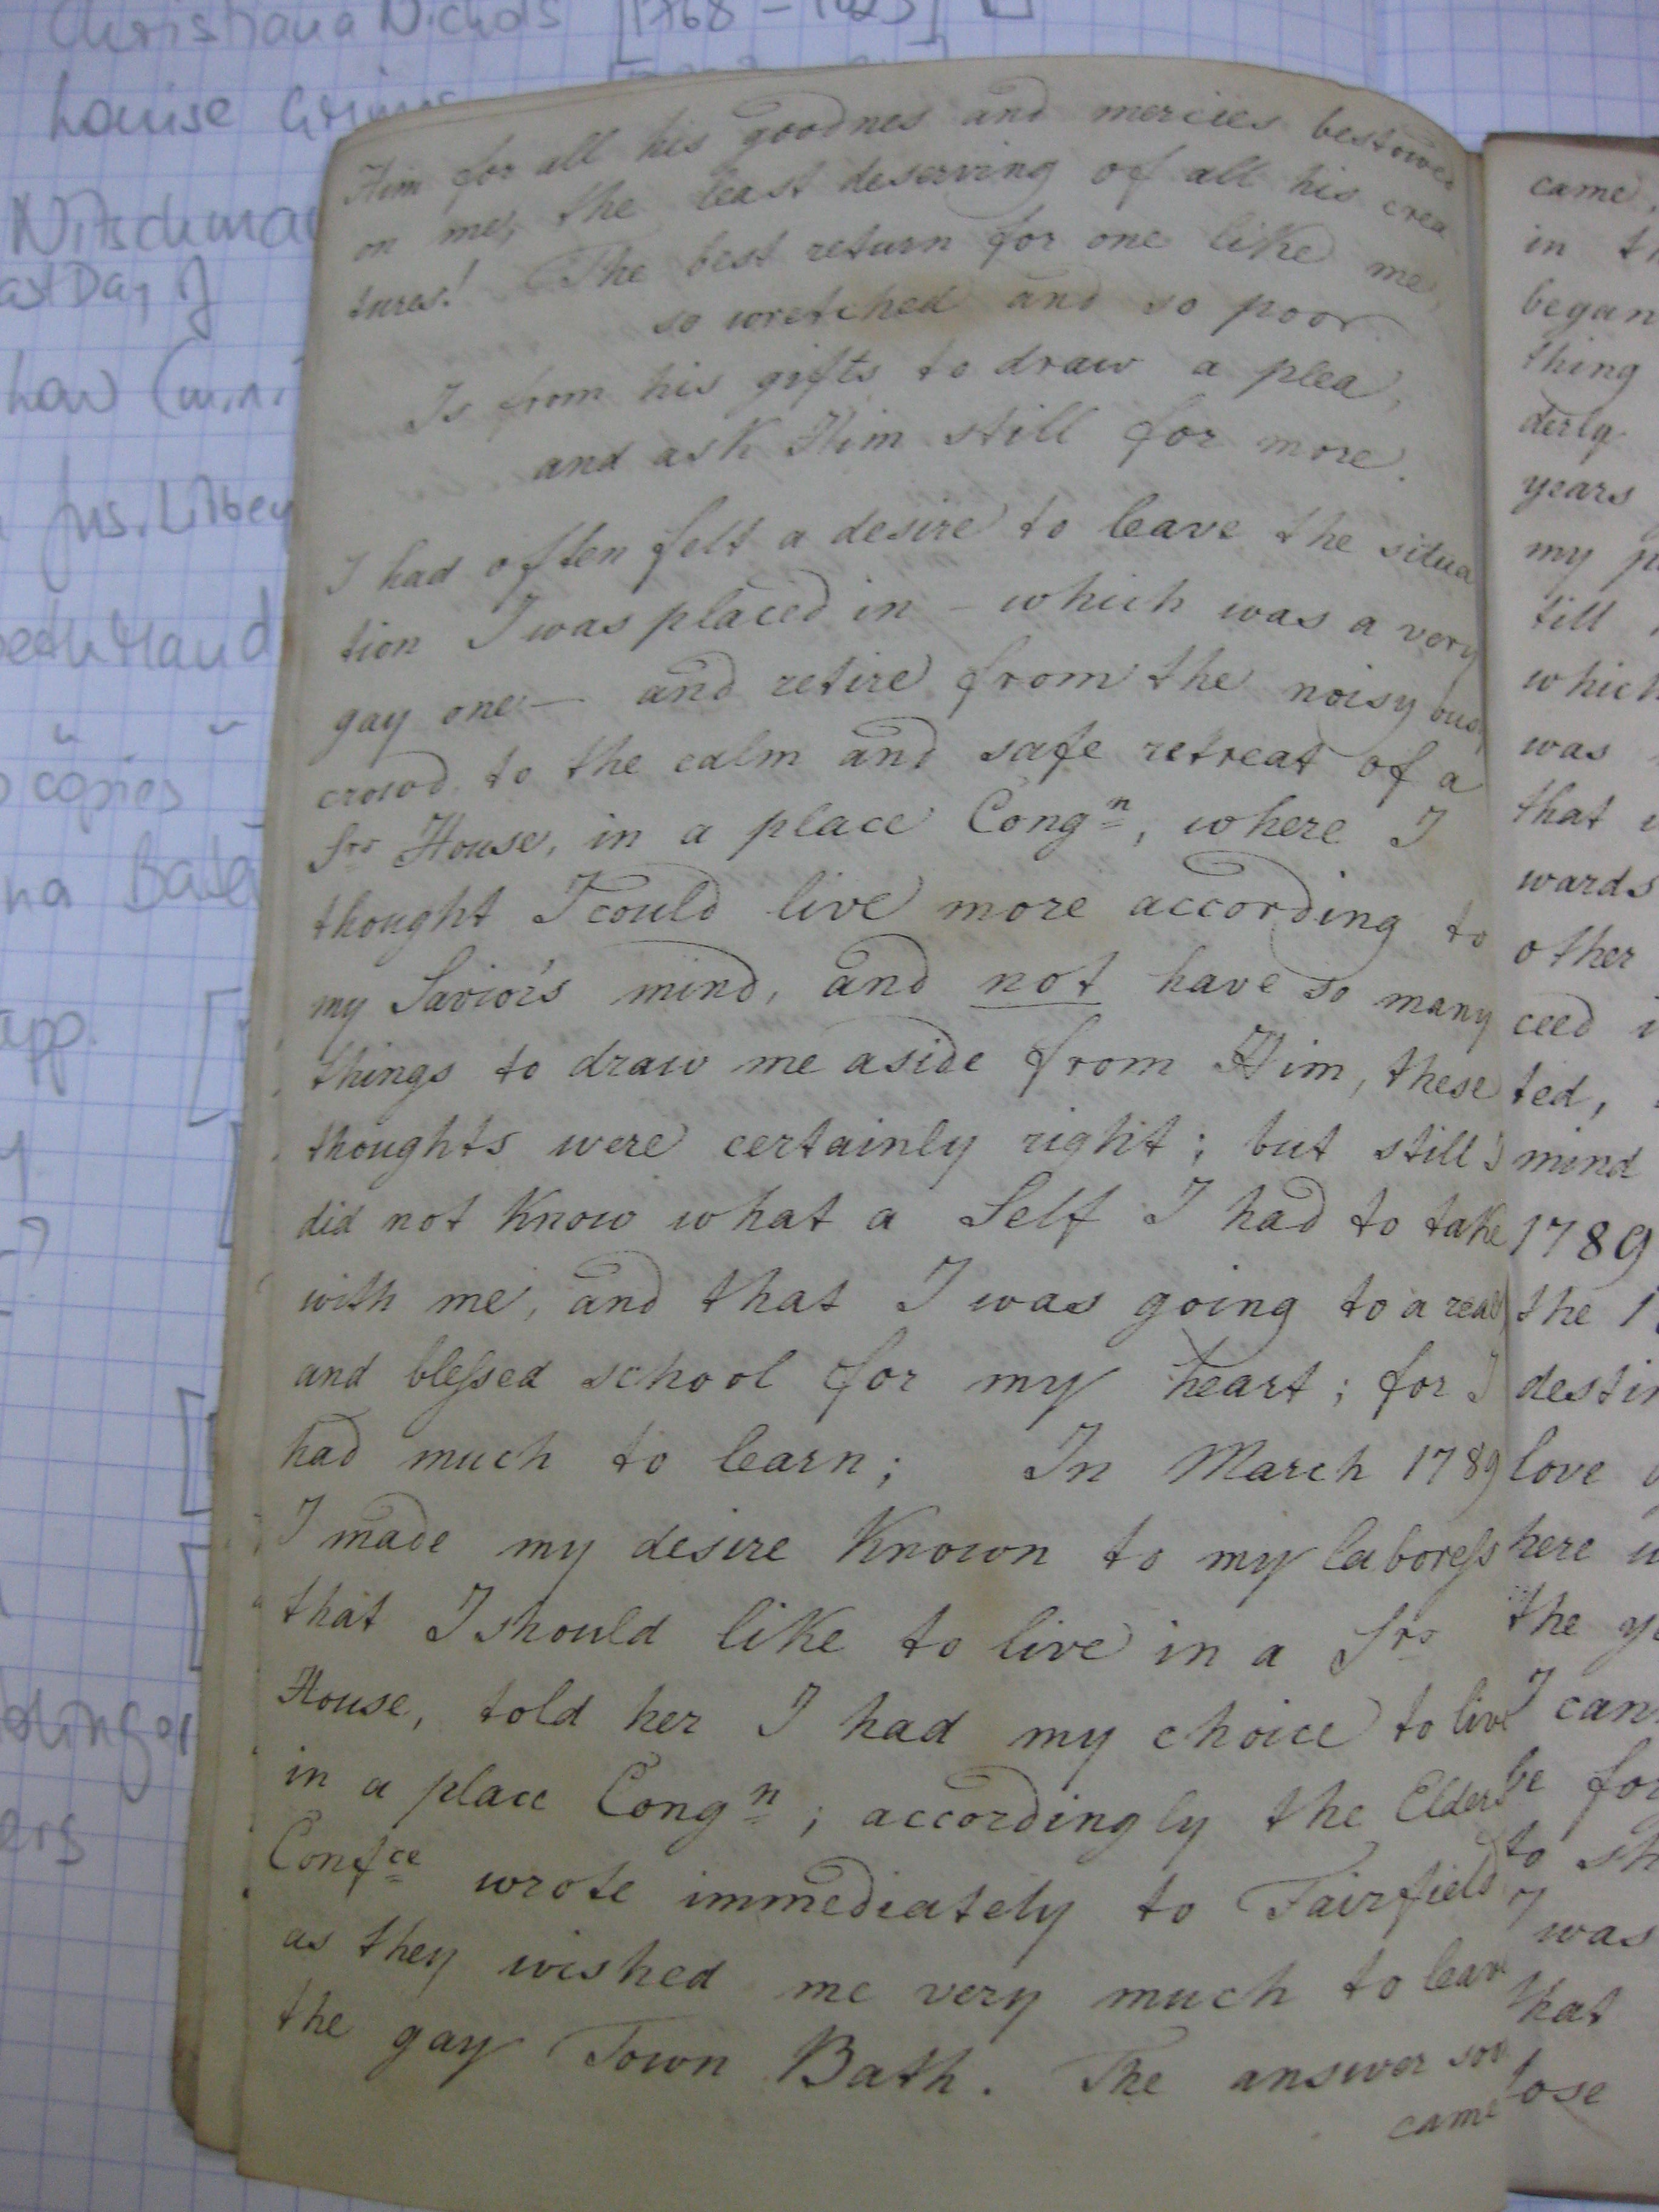 Christiana Nichols [1768 -
Louise
Nitschma
ast Day of
how (mini
copies
na
app.
ers
Him for all his goodnes and mercies bestowed
on me, the least deserving of all his crea
tures! The best return for one like me,
so wretched and so poor
Is from his gifts to draw a plea,
and ask Him still for more.
I had often felt a desire to leave the situa
tion I was placed in – which was a very
gay one – and retire from the noisy
crowd to the calm and safe retreat of a
Srs House, in a place Congn, where I
thought I could live more according to
my Savior's mind, and not have so many
things to draw me aside from Him, these
thoughts were certainly right; but still I
did not Know what a Self I had to take
with me, and that I was going to a real
and blessed school for my heart; for I
had much to learn; In March 1789
I made my desire Known to my laboress
that I should like to live in a Srs
House, told her I had my choice to live
in a place Congn; accordingly the Elders
Confce wrote immediately to Fairfield
as they wished me very much to leave
the gay Town Bath. The answer soo
came
came,
in th
began
thing
derly
years
my p
till
which
was
that
wards
other
ceed
ted,
mind
1789
the 1
destin
love
here w
the y
I can
be for
to sh
I was
that
lose